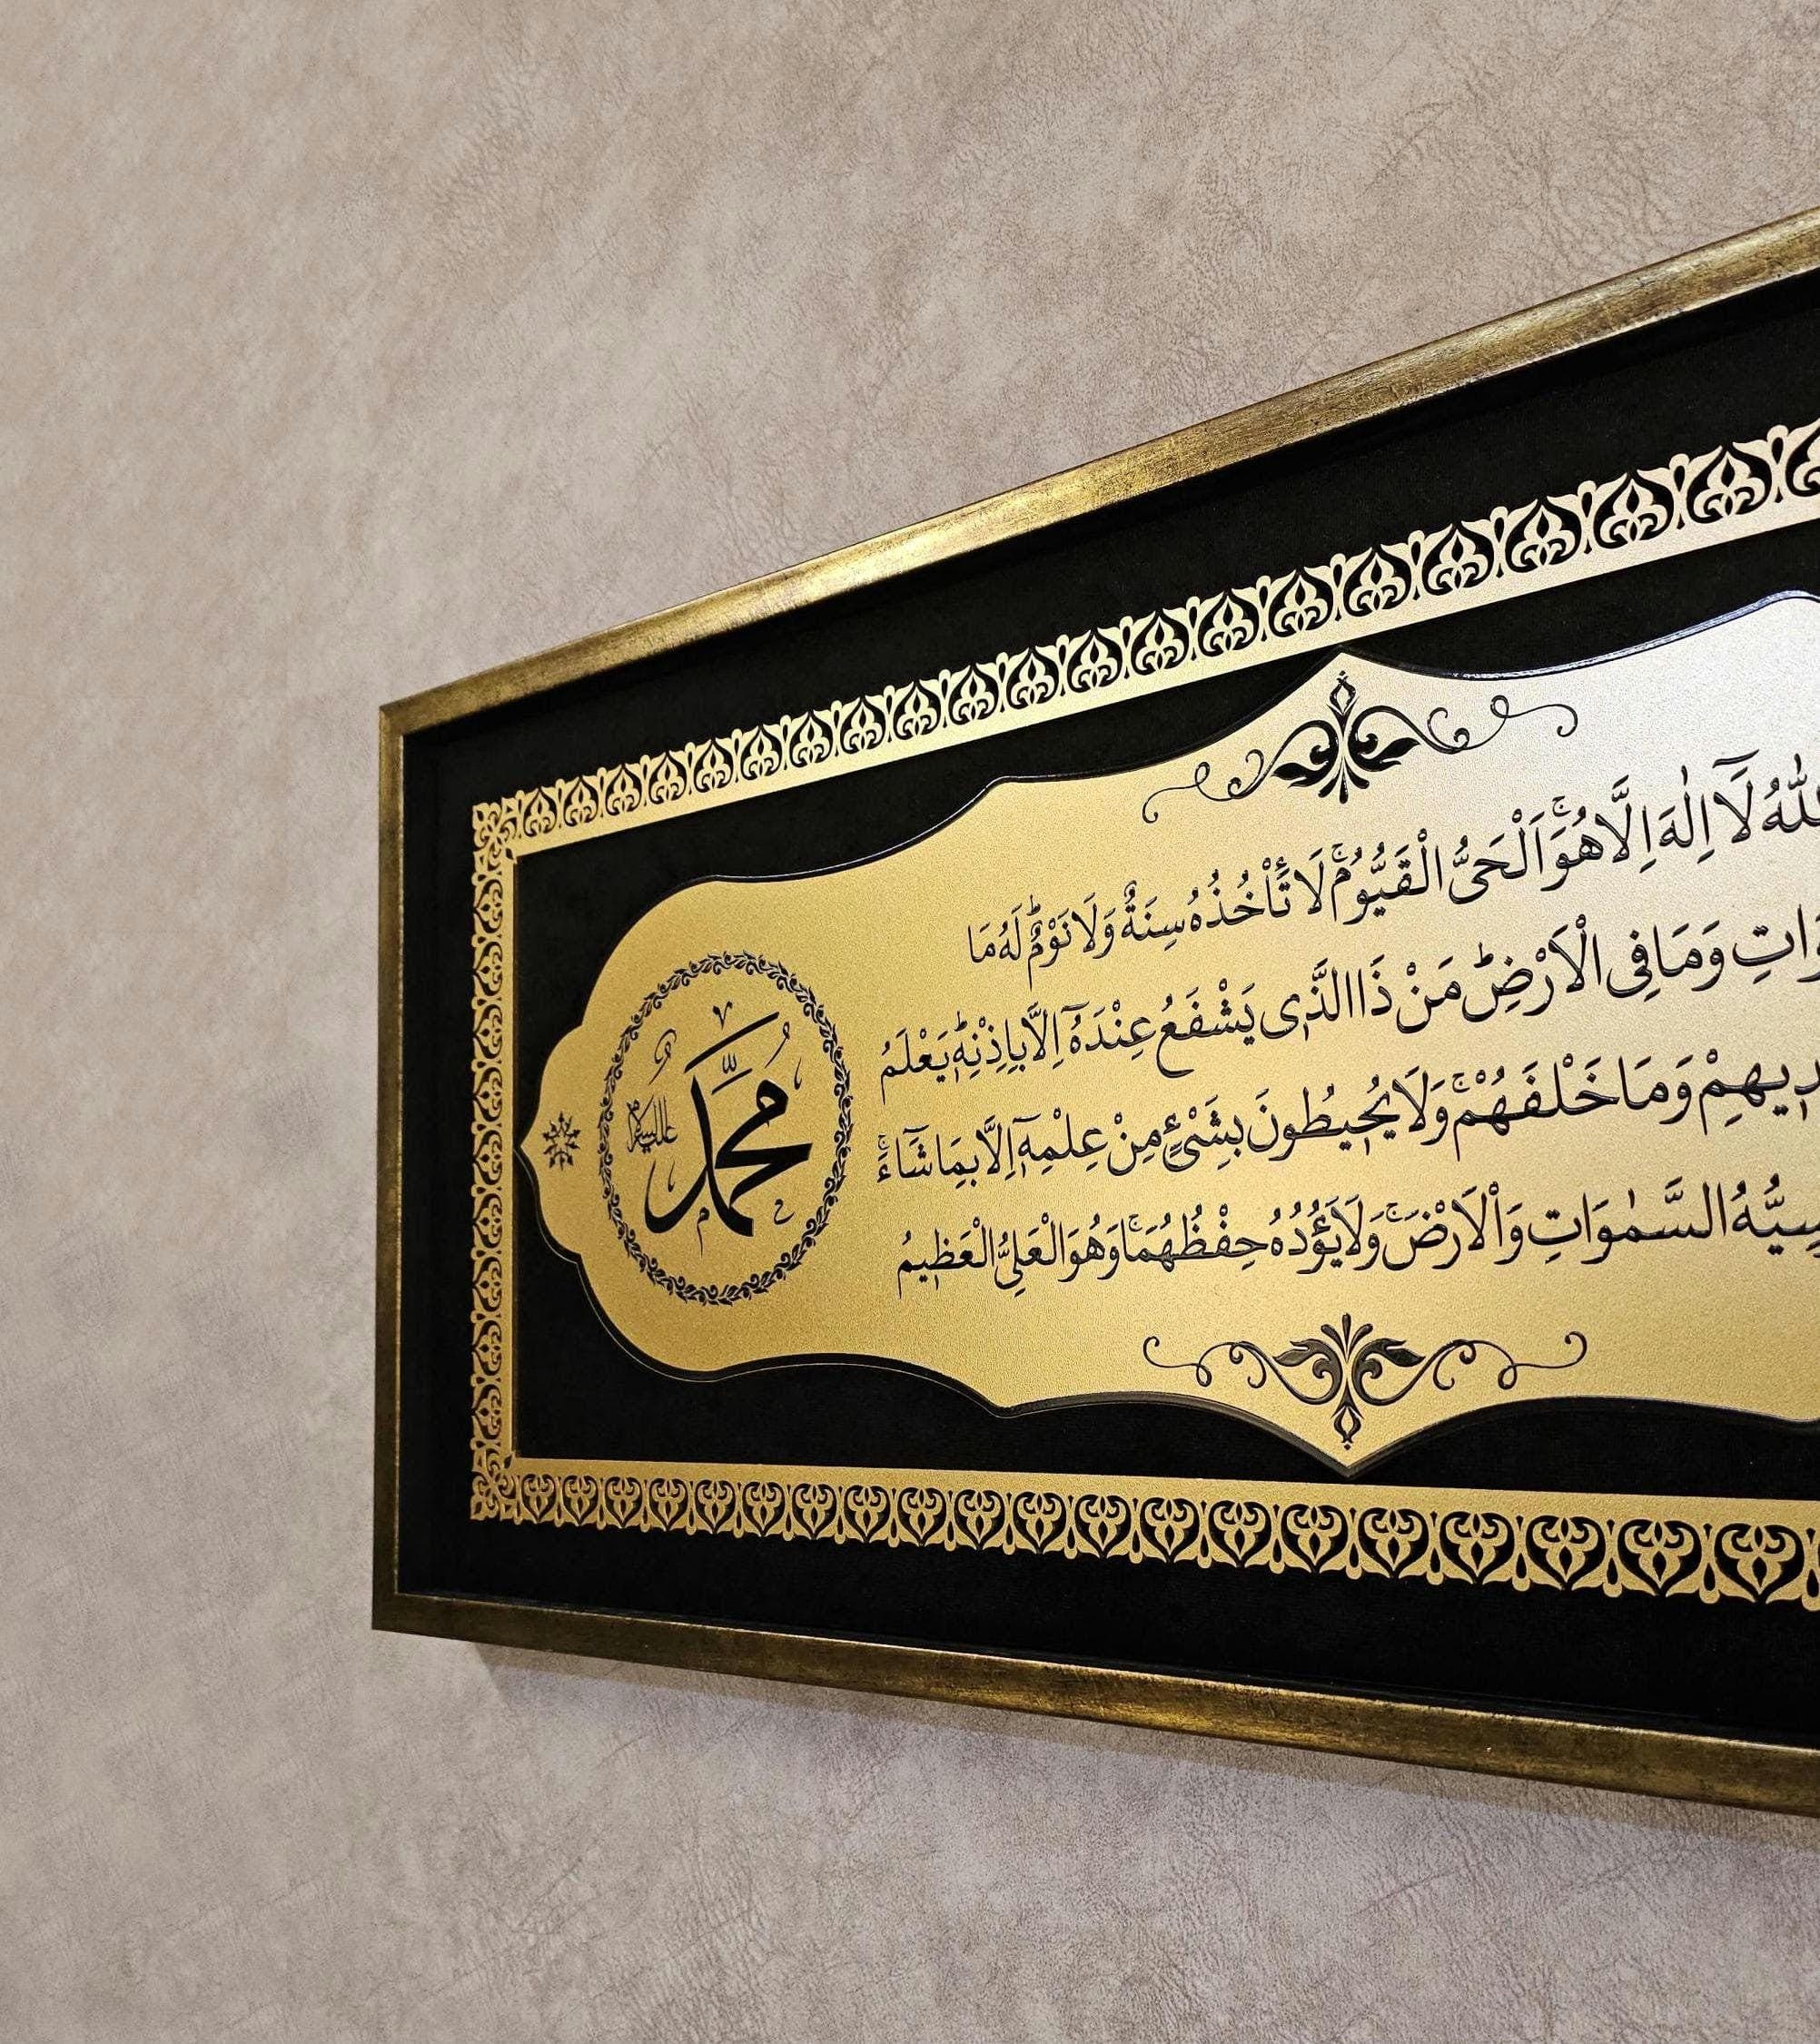 اَللّٰهُ لَٓا اِلٰهَ اِلَّا هُوَۚ اَلْحَىُّ الْقَيُّومُۚ لَا تَأْخُذُهُ سِنَةٌ وَلَا نَوْمٌؕ لَهُ مَا
وَمَا فِى الْاَرْضِؕ مَنْ ذَا الَّذٖى يَشْفَعُ عِنْدَهُٓ اِلَّا بِاِذْنِهٖؕ يَعْلَمُ
وَمَا خَلْفَهُمْۚ وَلَا يُحٖيطُونَ بِشَىْءٍ مِنْ عِلْمِهٖٓ اِلَّا بِمَا شَٓاءَۚ
السَّمٰوَاتِ وَالْاَرْضَۚ وَلَا يَؤُدُهُ حِفْظُهُمَاۚ وَهُوَ الْعَلِىُّ الْعَظٖيمُ
محمد
عليه السلام